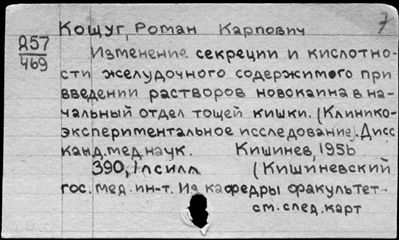 Кощуг, Роман Карпович
7
Д57
469
Изменение секреции и кислотно-
сти желудочного содержимого при
введении растворов новокаина в на-
чальный отдел тощей кишки. (Клинико-
экспериментальное исследование). Дисс
канд. мед. наук. Кишинев, 1956
390, 1л силл (Кишиневский
гос. мед. ин-т. Из кафедры факультет-
см. след. карт